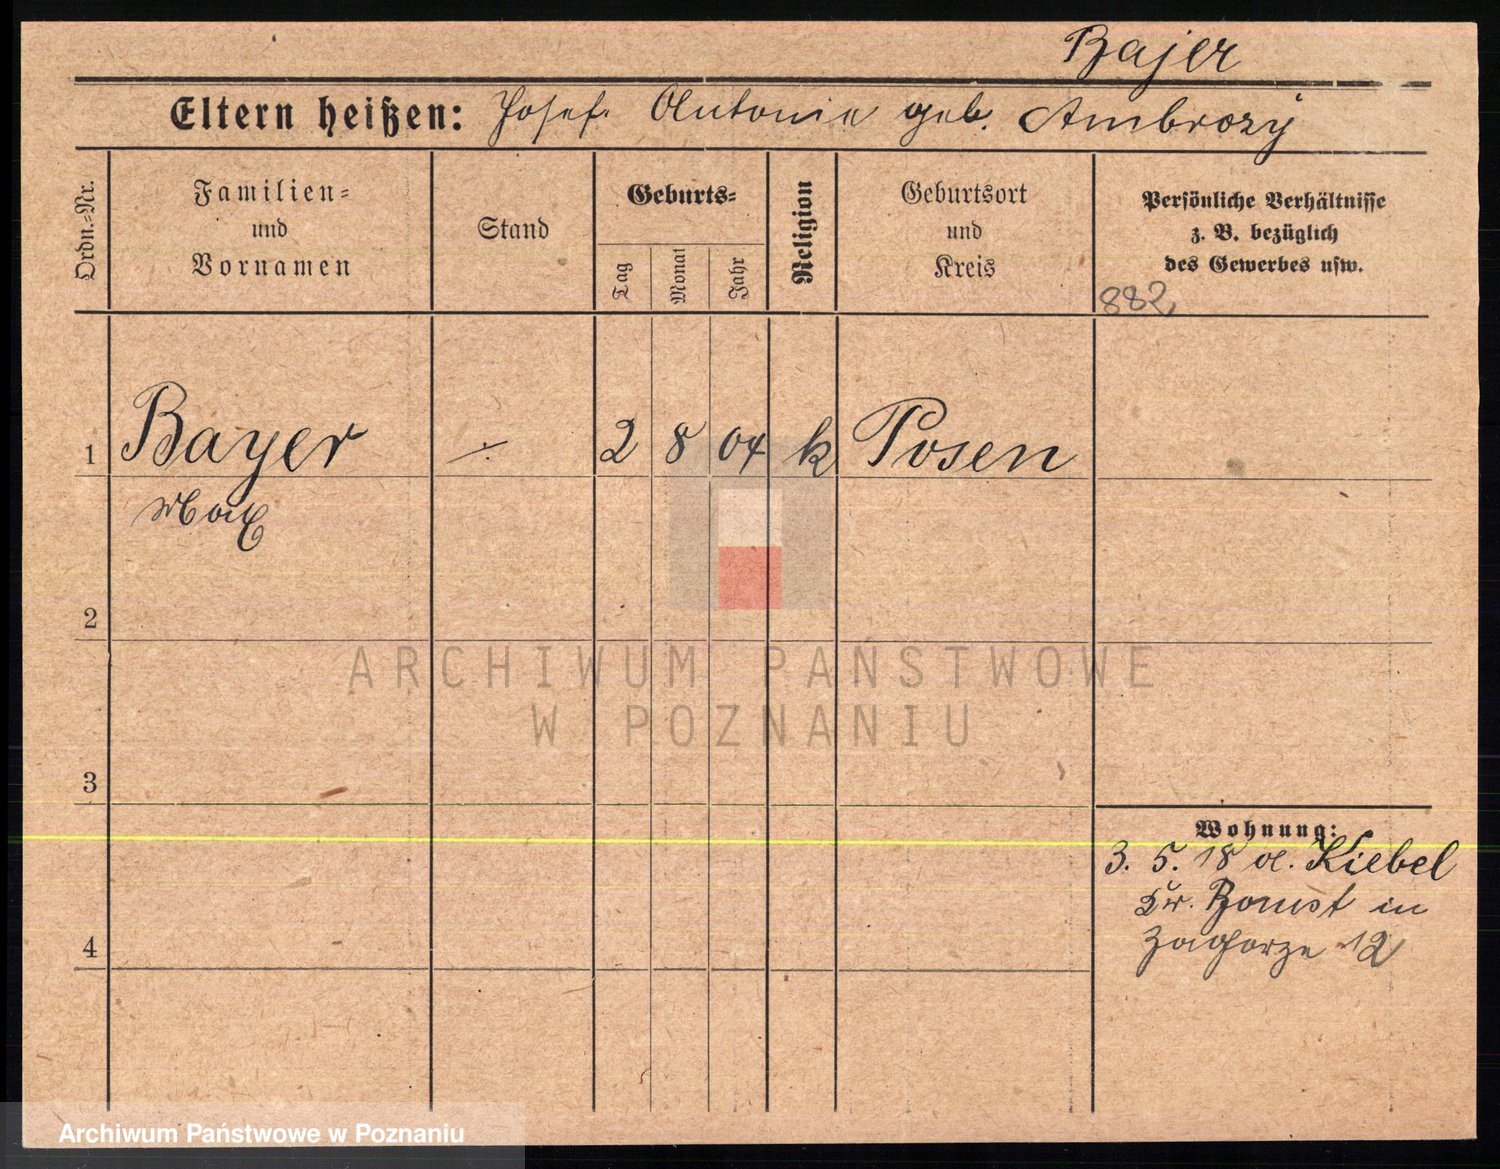 Bajer
Eltern heißen: Josef. Antonie geb. Ambrozy
Ordn.-Nr.
Familien-
und
Vornamen
Stand
Geburts-
Tag
Monat
Jahr
Religion
Geburtsort
und
Kreis
Persönliche Verhältnisse
z. B. bezüglich
des Gewerbes usw.
882,
1 Bayer ÷ 2 8 04 k Posen
Max
2
ARCHIWUM PAŃSTWOWE
W POZNANIU
3
Wohnung:
3. 5. 18 a. Kiebel
Kr. Bomst in
Zagorze 12
4
Archiwum Państwowe w Poznaniu